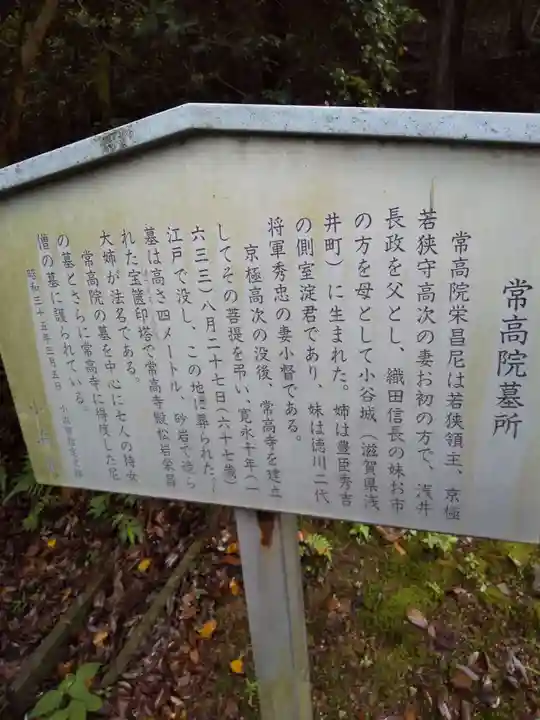 常高院墓所
常高院栄昌尼は若狭領主、京極
若狭守高次の妻お初の方で、浅井
長政を父とし、織田信長の妹お市
の方を母として小谷城(滋賀県浅
井町)に生まれた。姉は豊臣秀吉
の側室淀君であり、妹は徳川二代
将軍秀忠の妻小督である。
京極高次の没後、常高寺を建立
してその菩提を弔い、寛永十年(一
六三三)八月二十七日(六十七歳)
江戸で没し、この地に葬られた。
墓は高さ四メートル、砂岩で造ら
れた宝篋印塔で常高寺殿松岩栄昌
大姉が法名である。
常高院の墓を中心に七人の侍女
の墓とさらに常高寺に得度した尼
僧の墓に護られている。
昭和三十五年三月五日
小浜